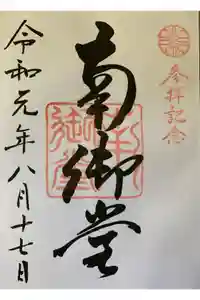 参拝記念
南御堂
令和元年八月十七日